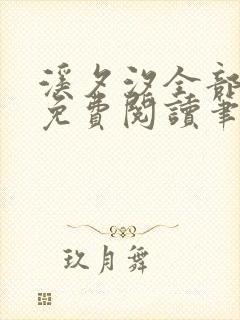 溪夕汐全部
免費閱讀筆
玖月舞